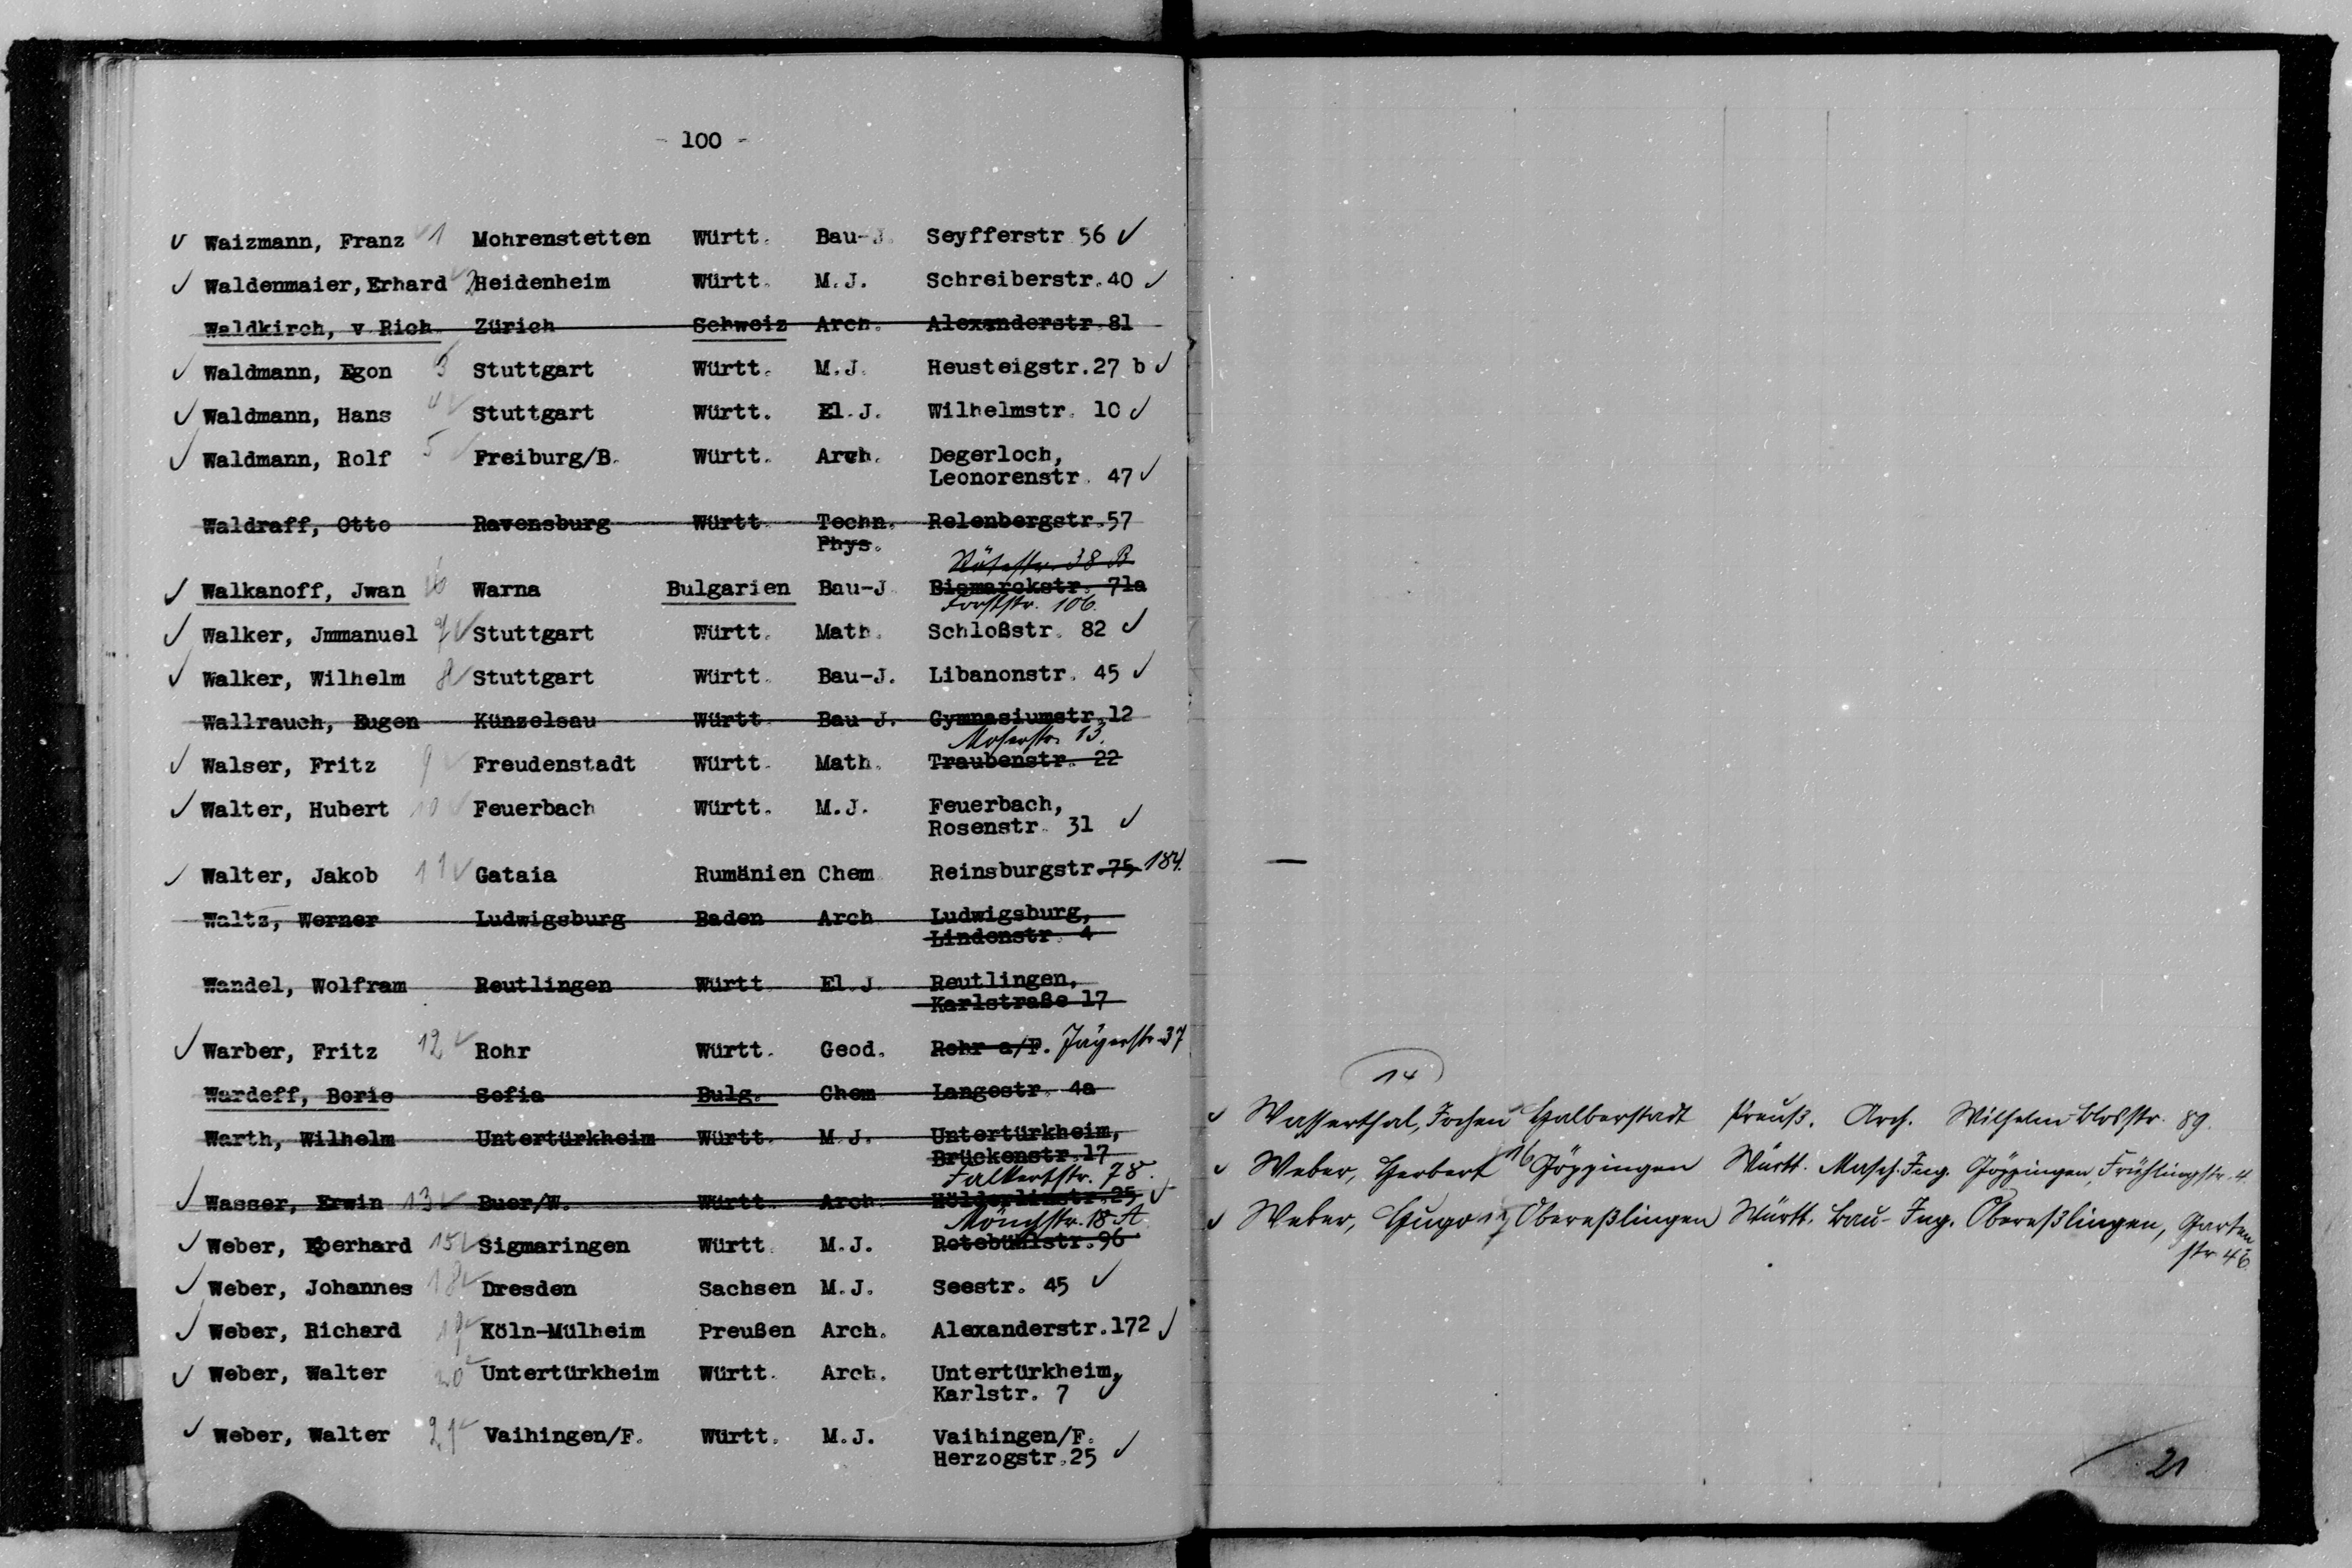 - 100 -
Waizmann, Franz 1 Mohrenstetten Württ. Bau-J. Seyfferstr 56
Waldenmaier, Erhard 2 Heidenheim Württ. M.J. Schreiberstr. 40
Waldkirch, v Rich Zürich Schweiz Arch. Alexanderstr. 81
Waldmann, Egon 3 Stuttgart Württ. M.J. Heusteigstr. 27 b
Waldmann, Hans 4 Stuttgart Württ. El.J. Wilhelmstr. 10
Waldmann, Rolf 5 Freiburg/B. Württ. Arch. Degerloch,
Leonorenstr. 47
Waldraff, Otto Ravensburg Württ. Techn. Relenbergstr. 57
Phys.
38 B
Walkanoff, Jwan 6 Warna Bulgarien Bau-J Bismarckstr. 71a
Forststr. 106.
Walker, Jmmanuel 7 Stuttgart Württ. Math. Schloßstr. 82
Walker, Wilhelm 8 Stuttgart Württ. Bau-J. Libanonstr. 45
Wallrauch, Eugen Künzelsau Württ. Bau J. Gymnasiumstr. 12
Moserstr. 13.
Walser, Fritz 9 Freudenstadt Württ. Math. Traubenstr. 22
Walter, Hubert 10 Feuerbach Württ. M.J. Feuerbach,
Rosenstr. 31
Walter, Jakob 11 Gataia Rumänien Chem Reinsburgstr. 75 184.
Waltz, Werner Ludwigsburg Baden Arch Ludwigsburg,
Lindenstr. 4
Wandel, Wolfram Reutlingen Württ El.J. Reutlingen,
Karlstraße 17
Warber, Fritz 12 Rohr Württ. Geod. Rohr a/F. Jägerstr. 37
Wardeff, Boris Sofia Bulg. Chem Langestr. 4a
Warth, Wilhelm Untertürkheim Württ. M.J. Untertürkheim,
Brückenstr. 17
Falkertstr. 78.
Wasser, Erwin 13 Buer/W. Württ. Arch Hölderlinstr. 25
Mönchstr. 18 A
Weber, Eberhard 15 Sigmaringen Württ. M.J. Rotebühlstr. 96
Weber, Johannes 18 Dresden Sachsen M.J. Seestr. 45
Weber, Richard 19 Köln-Mülheim Preußen Arch. Alexanderstr. 172
Weber, Walter 20 Untertürkheim Württ. Arch. Untertürkheim,
Karlstr. 7
Weber, Walter 21 Vaihingen/F. Württ. M.J. Vaihingen/F.
Herzogstr. 25
14
Wasserthal, Jochen Halberstadt Preuß. Arch. Wilhelm-Blosstr. 89.
Weber, Herbert 16 Göppingen Württ. Masch.Ing. Göppingen, Frühlingstr. 4.
Weber, Hugo 17 Obereßlingen Württ. Bau-Ing. Obereßlingen, Garten
str. 46.
21